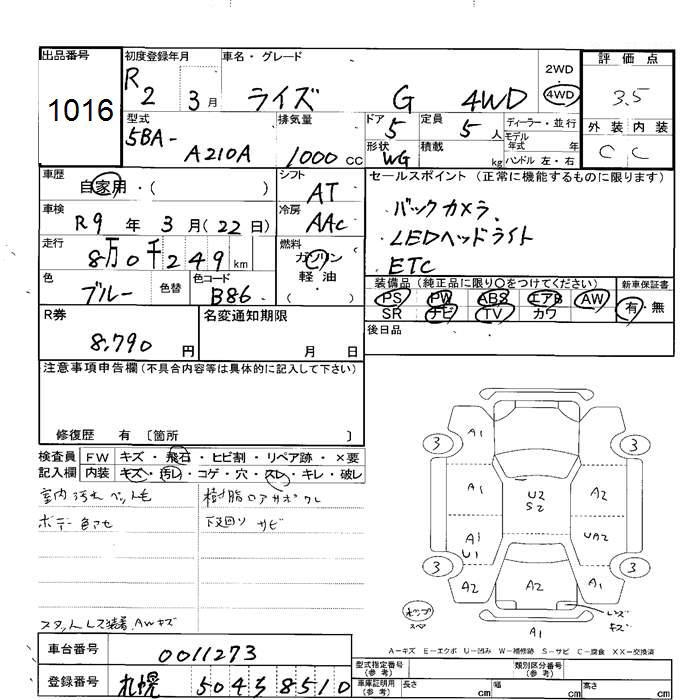 出品番号
1016
初度登録年月
R2 3月
車名・グレード
ライズ G 4WD
2WD
4WD
評価点
3.5
外装 内装
C C
型式
5BA-
A210A
排気量
1000 cc
ドア
5
定員
5 人
形状
WG
積載
kg
ディーラー・並行
モデル
年式 年
ハンドル 左・右
車歴
自家用・( )
シフト
AT
セールスポイント (正常に機能するものに限ります)
・バックカメラ
・LEDヘッドライト
・ETC
車検
R9 年 3 月 (22日)
冷房
AAC
走行
8万0千249 km
燃料
ガソリン
軽・油
( )
色
ブルー
色替
色コード
B86
装備品 (純正品に限り○をつけてください)
PS PW ABS エアB AW
SR ナビ TV カワ
新車保証書
有・無
R券
8,790 円
名変通知期限
月 日
後日品
注意事項申告欄 (不具合内容等は具体的に記入して下さい)
修復歴 有 〔箇所 〕
検査員
記入欄
FW キズ・飛石・ヒビ割・リペア跡・×要
内装 キズ・汚レ・コゲ・穴・スレ・キレ・破レ
室内汚れ ペット毛
樹脂ロアサポワレ
ボデー色アセ
下廻り サビ
スタットレス装着、AWキズ
A1
3
3
A1
A2
U2
S2
A1
U1
UA2
3
3
A2
A2
A1
レンズ
キズ
A1
A-キズ E-エクボ U-凹み W-補修跡 S-サビ C-腐食 XX-交換済
車台番号
0011273
登録番号
札幌 504 ろ 8510
型式指定番号
(参考)
類別区分番号
(参考)
車庫証明用
(参考)
長さ cm
幅 cm
高さ cm